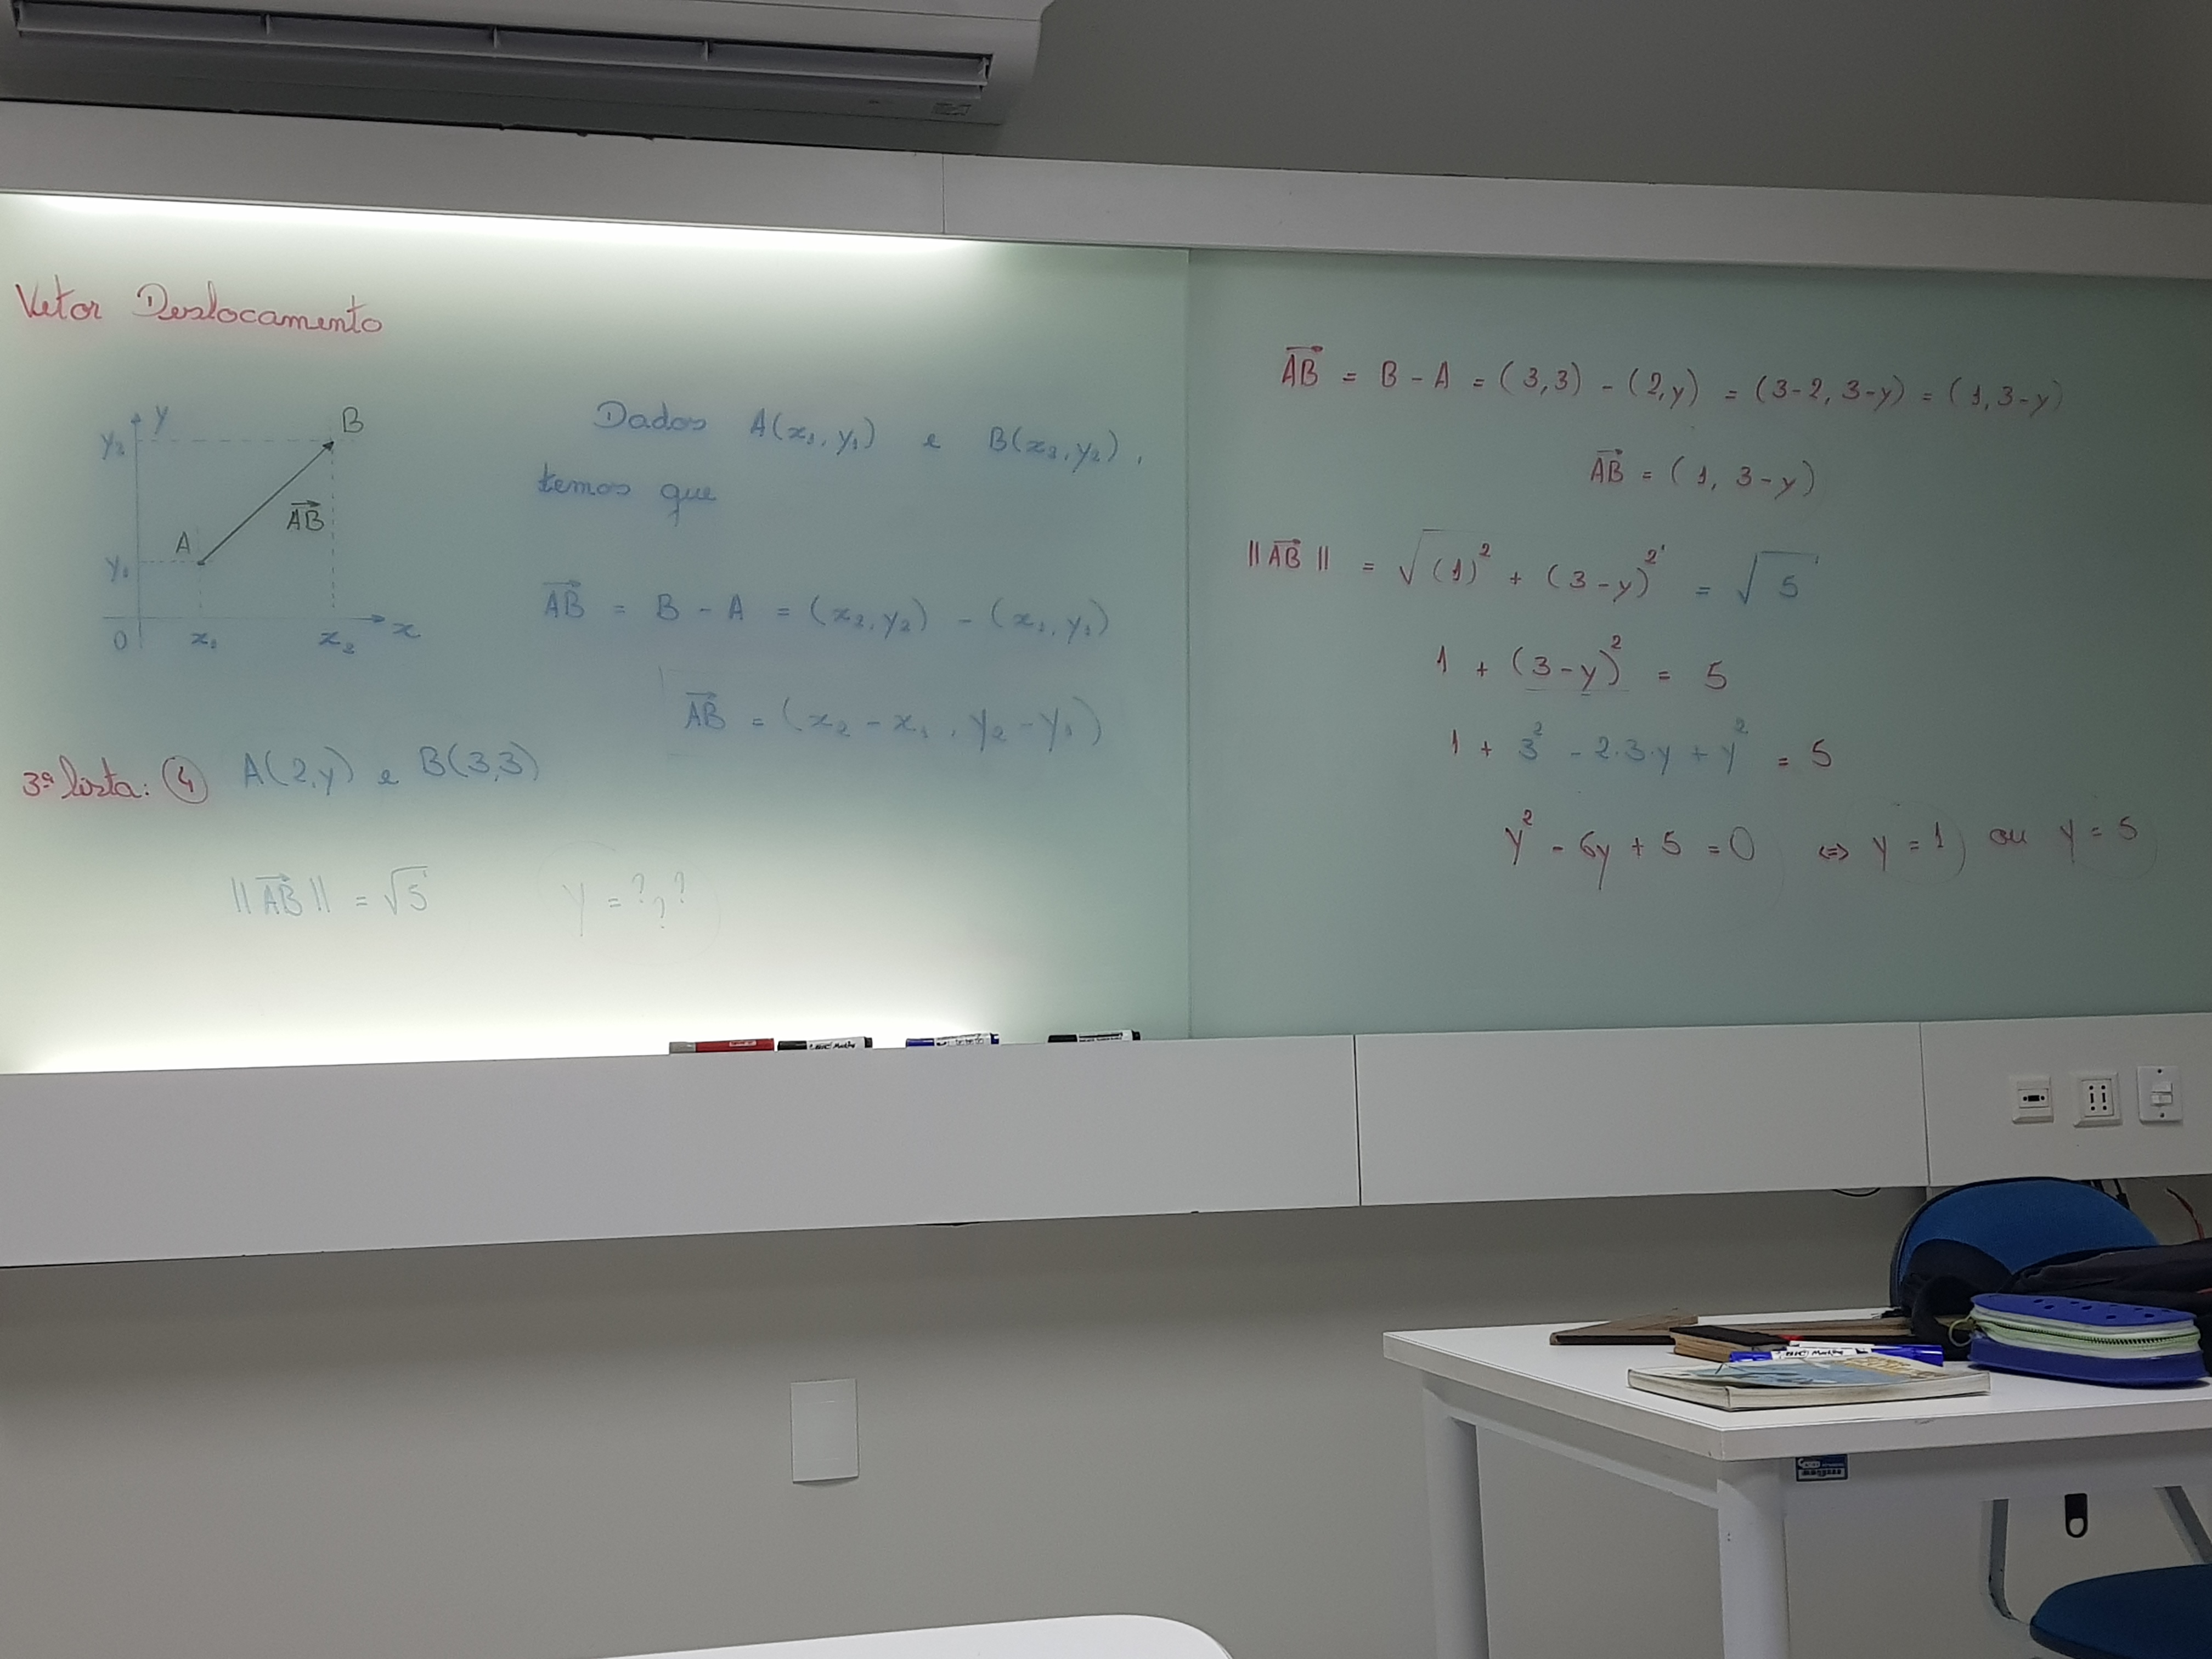 Vetor Deslocamento
y
y₂
B
AB
A
y₁
0
x₁
x₂
x
Dados A(x₁, y₁) e B(x₂, y₂),
temos que
AB = B - A = (x₂, y₂) - (x₁, y₁)
AB = (x₂ - x₁, y₂ - y₁)
3ª lista: 4 A(2,y) e B(3,3)
||AB|| = √5 y = ???
AB = B - A = (3,3) - (2,y) = (3-2, 3-y) = (1, 3-y)
AB = (1, 3-y)
||AB|| = √(1)² + (3-y)² = √5
1 + (3-y)² = 5
1 + 3² - 2·3·y + y² = 5
y² - 6y + 5 = 0 ⇔ y = 1 ou y = 5